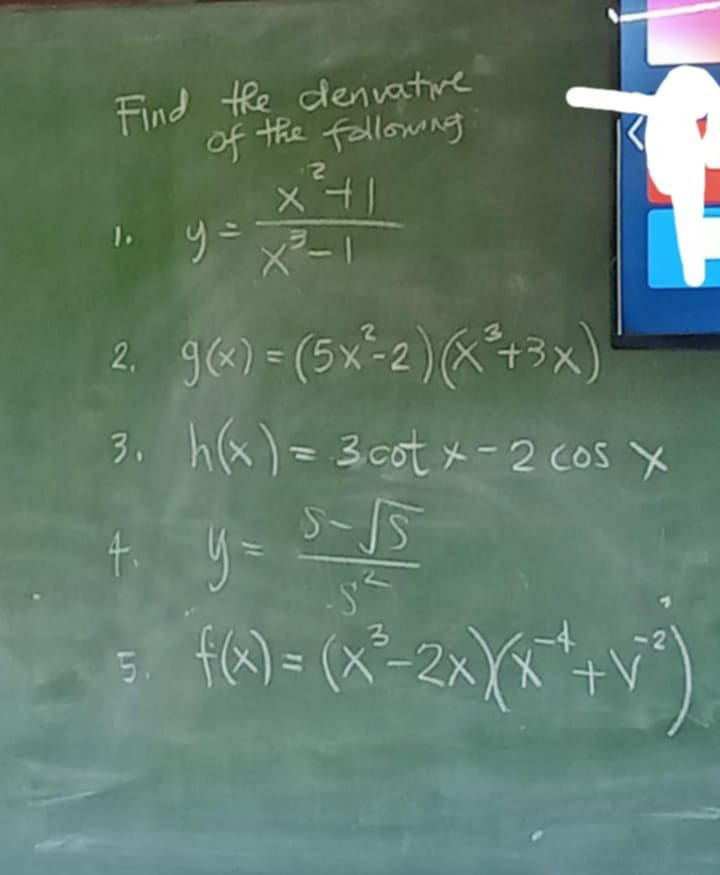 Find the derivative
of the following
1. y = (x²+1)/(x³-1)
2. g(x) = (5x²-2)(x³+3x)
3. h(x) = 3 cot x - 2 cos x
4. y = (s-√s)/s²
5. f(x) = (x³-2x)(x⁻⁴+v⁻²)